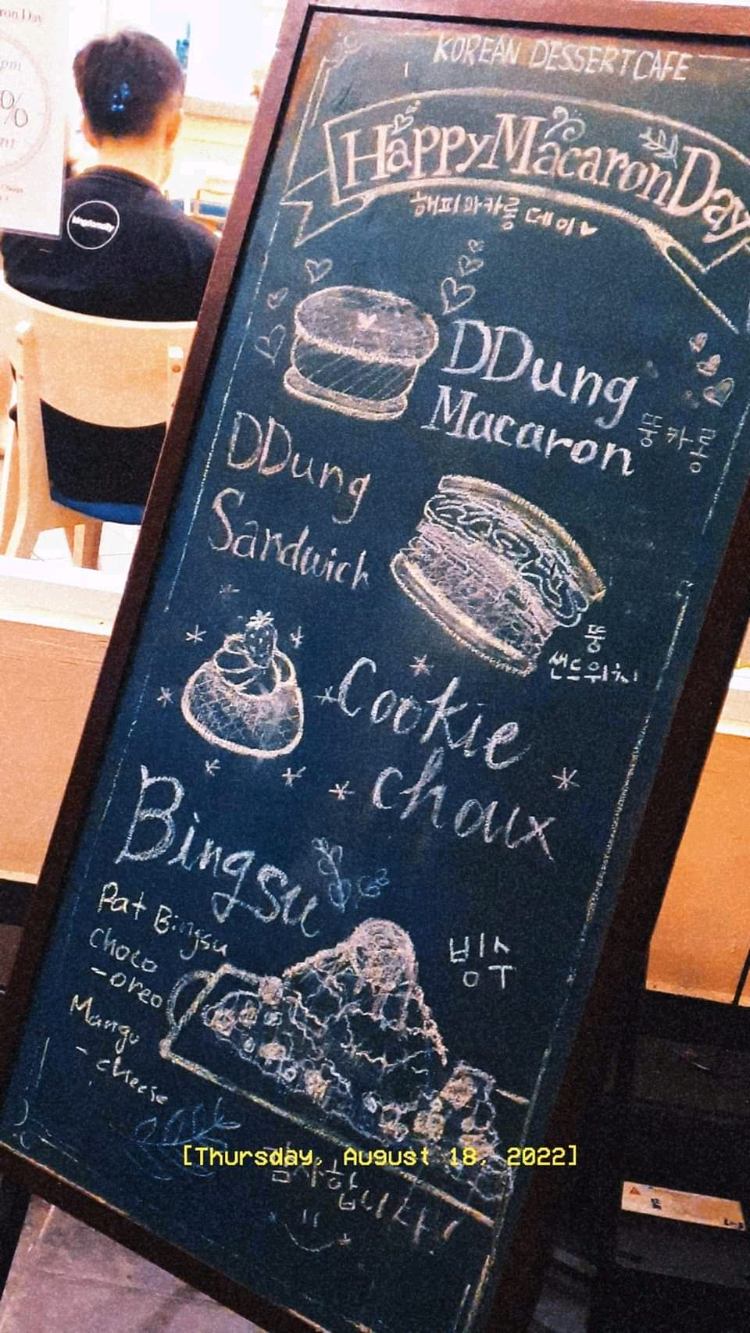 on Day
pm
%
KOREAN DESSERT CAFE
Happy Macaron Day
해피마카롱 데이♥
DDung
Macaron
뚱카롱
DDung
Sandwich
뚱
샌드위치
Cookie
choux
Bingsu
빙수
Pat Bingsu
Choco
-oreo
Mangu
- cheese
[Thursday, August 18, 2022]
감사합니다!